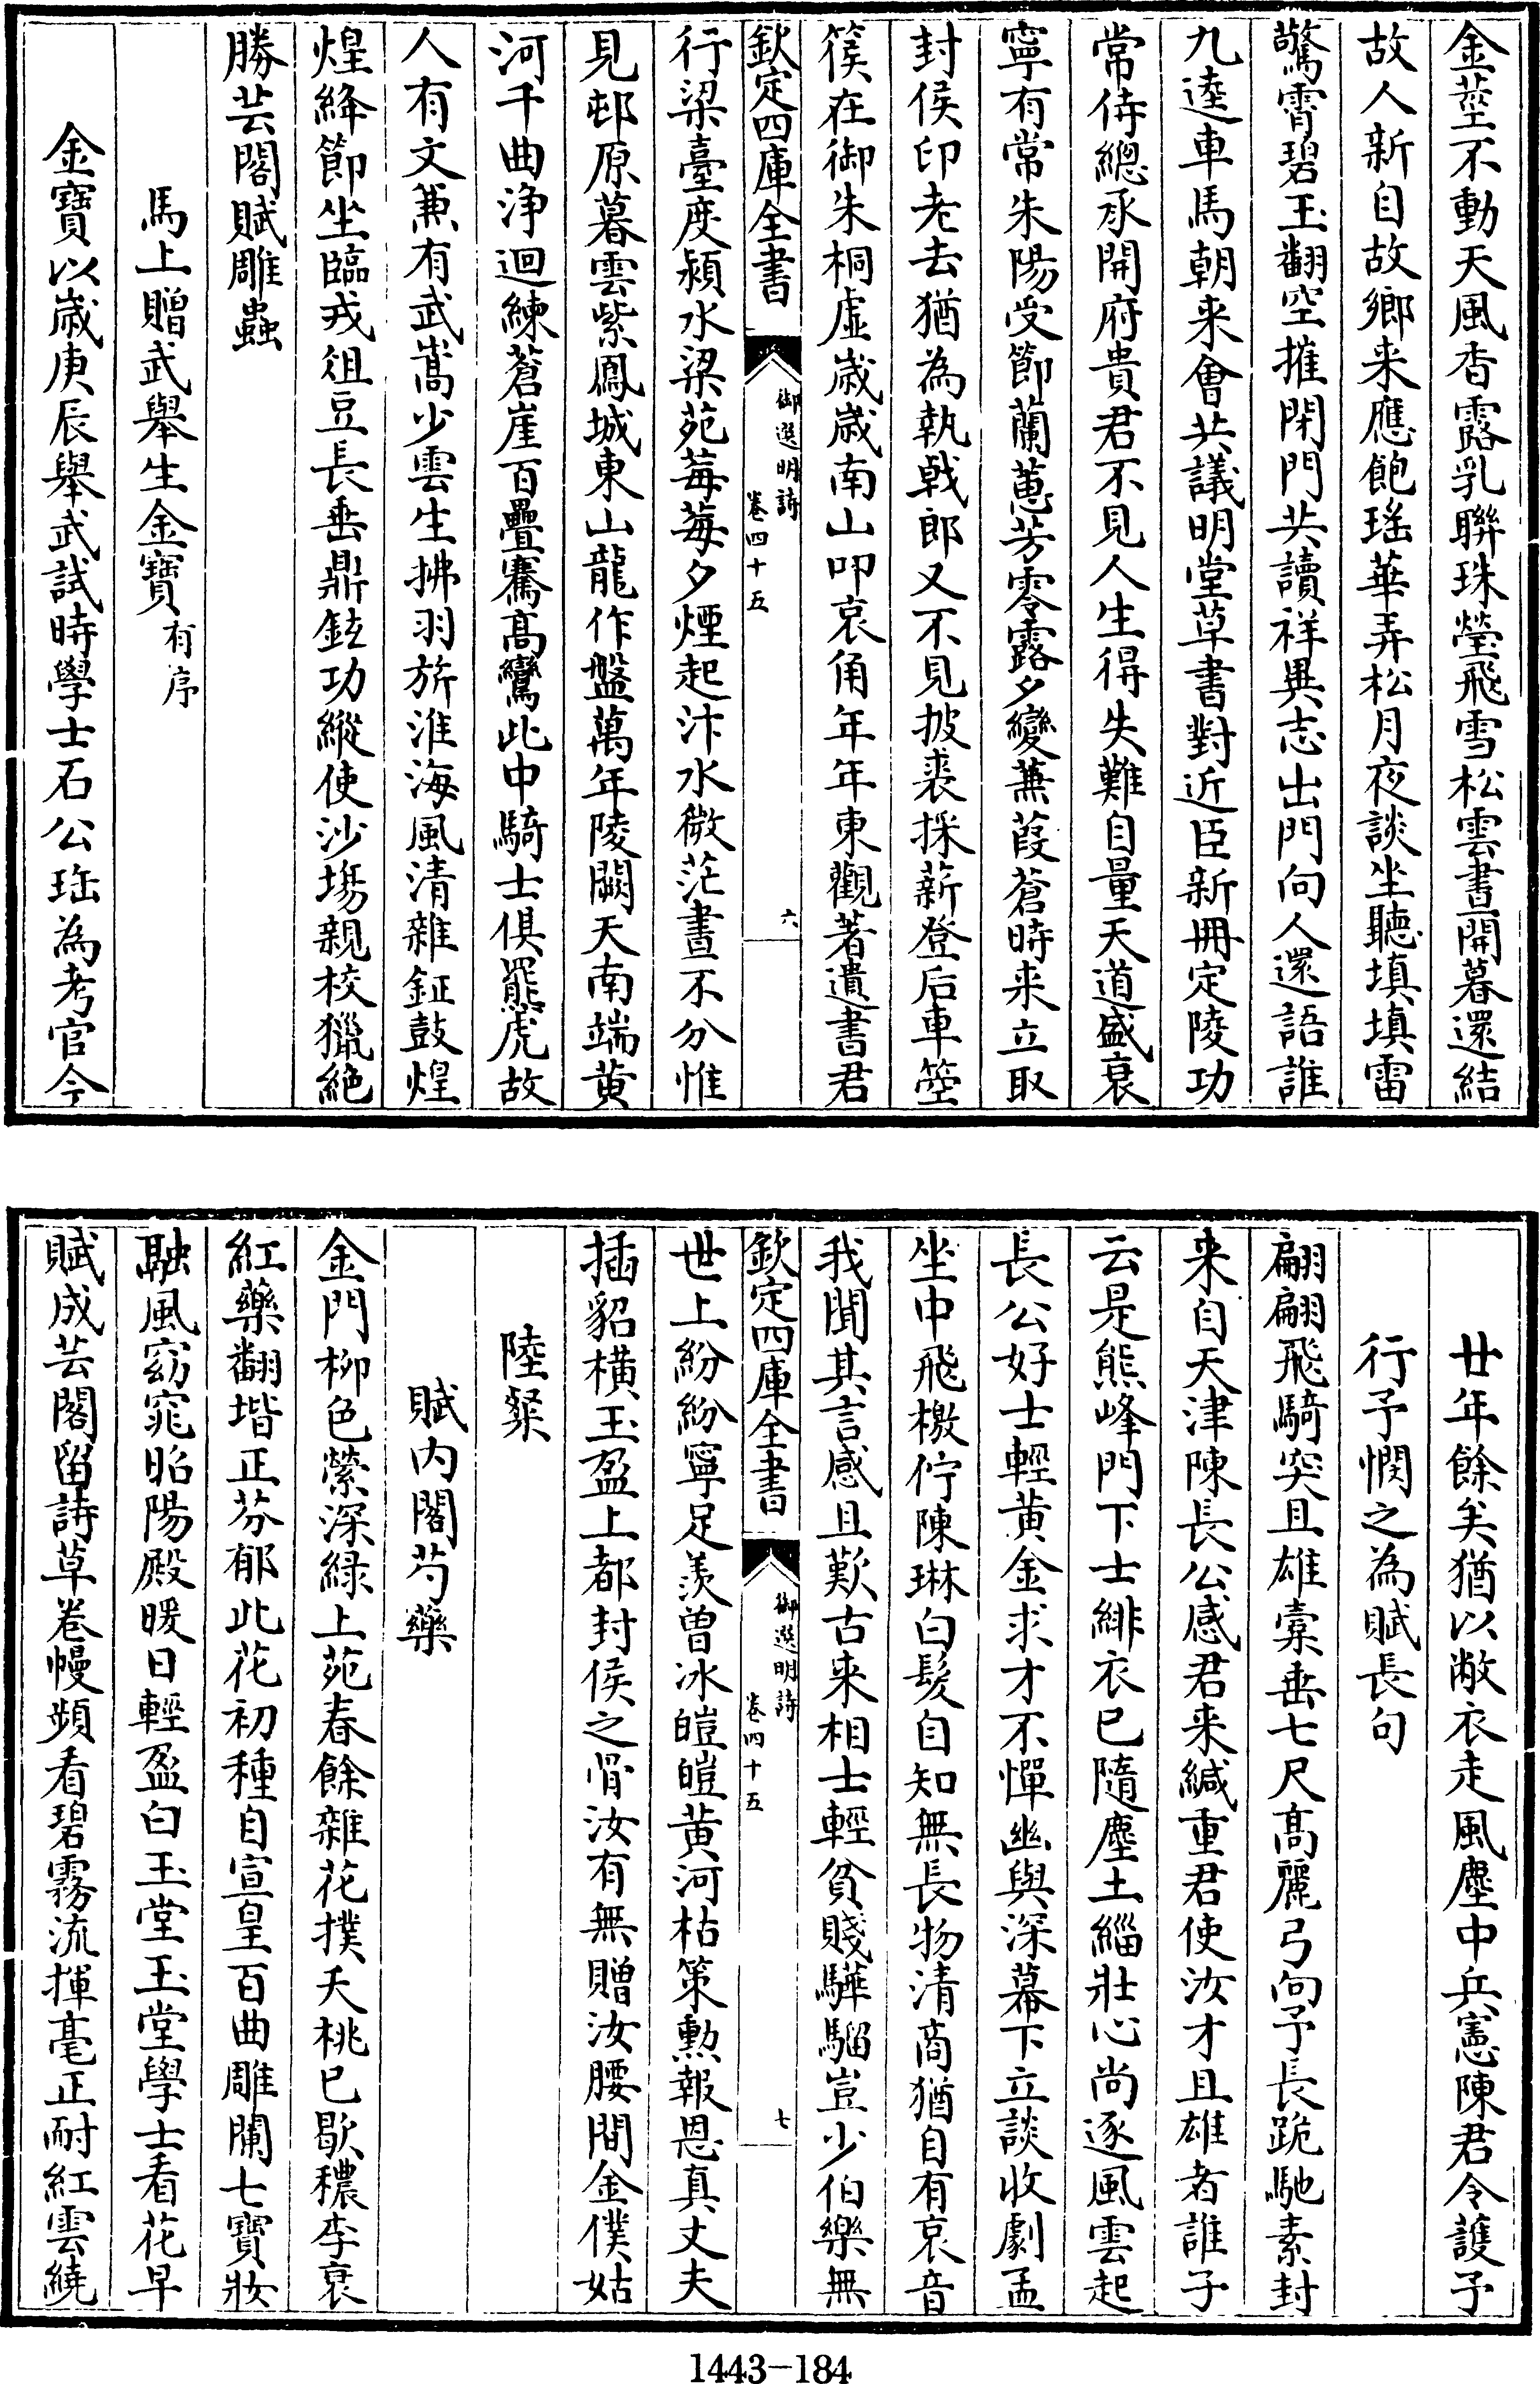 金莖不動天風香露乳聯珠瑩飛雪松雲書開暮還結
故人新自故鄉来應飽瑤華弄松月夜談坐聽填填雷
驚霄碧玉翻空摧閉門共讀祥異志出門向人還語誰
九逵車馬朝来會共議明堂草書對近臣新冊定陵功
常侍總承開府貴君不見人生得失難自量天道盛衰
寧有常朱陽受節蘭蕙芳零露夕變蒹葭蒼時来立取
封侯印老去猶為執戟郎又不見披裘採薪登后車箜
篌在御朱桐虛歳歳南山叩哀角年年東觀著遺書君
欽定四庫全書
御選明詩
卷四十五
六
行梁臺度潁水梁苑莓莓夕煙起汴水微茫晝不分惟
見邨原暮雲紫鳳城東山龍作盤萬年陵闕天南端黄
河千曲浄迴練蒼崖百疊騫髙鸞此中騎士俱羆虎故
人有文兼有武嵩少雲生拂羽旂淮海風清雜鉦鼓煌
煌絳節坐臨戎俎豆長垂鼎鉉功縱使沙塲親校獵絶
勝芸閣賦雕蟲
馬上贈武舉生金寶有序
金寶以歳庚辰舉武試時學士石公珤為考官今
廿年餘矣猶以敝衣走風塵中兵憲陳君令護予
行予憫之為賦長句
翩翩飛騎突且雄櫜垂七尺髙麗弓向予長跪馳素封
来自天津陳長公感君来緘重君使汝才且雄者誰子
云是熊峰門下士緋衣已隨塵土緇壯心尚逐風雲起
長公好士輕黄金求才不憚幽與深幕下立談收劇孟
坐中飛檄佇陳琳白髮自知無長物清商猶自有哀音
我聞其言感且歎古来相士輕貧賤驊騮豈少伯樂無
欽定四庫全書
御選明詩
卷四十五
七
世上紛紛寧足羨曾冰皚皚黄河枯策勲報恩真丈夫
插貂橫玉盈上都封侯之骨汝有無贈汝腰間金僕姑
陸粲
賦内閣芍藥
金門柳色縈深緑上苑春餘雜花撲夭桃已歇穠李衰
紅藥翻堦正芬郁此花初種自宣皇百曲雕闌七寳妝
融風窈窕昭陽殿暖日輕盈白玉堂玉堂學士看花早
賦成芸閣留詩草卷幔頻看碧霧流揮毫正耐紅雲繞
1443-184